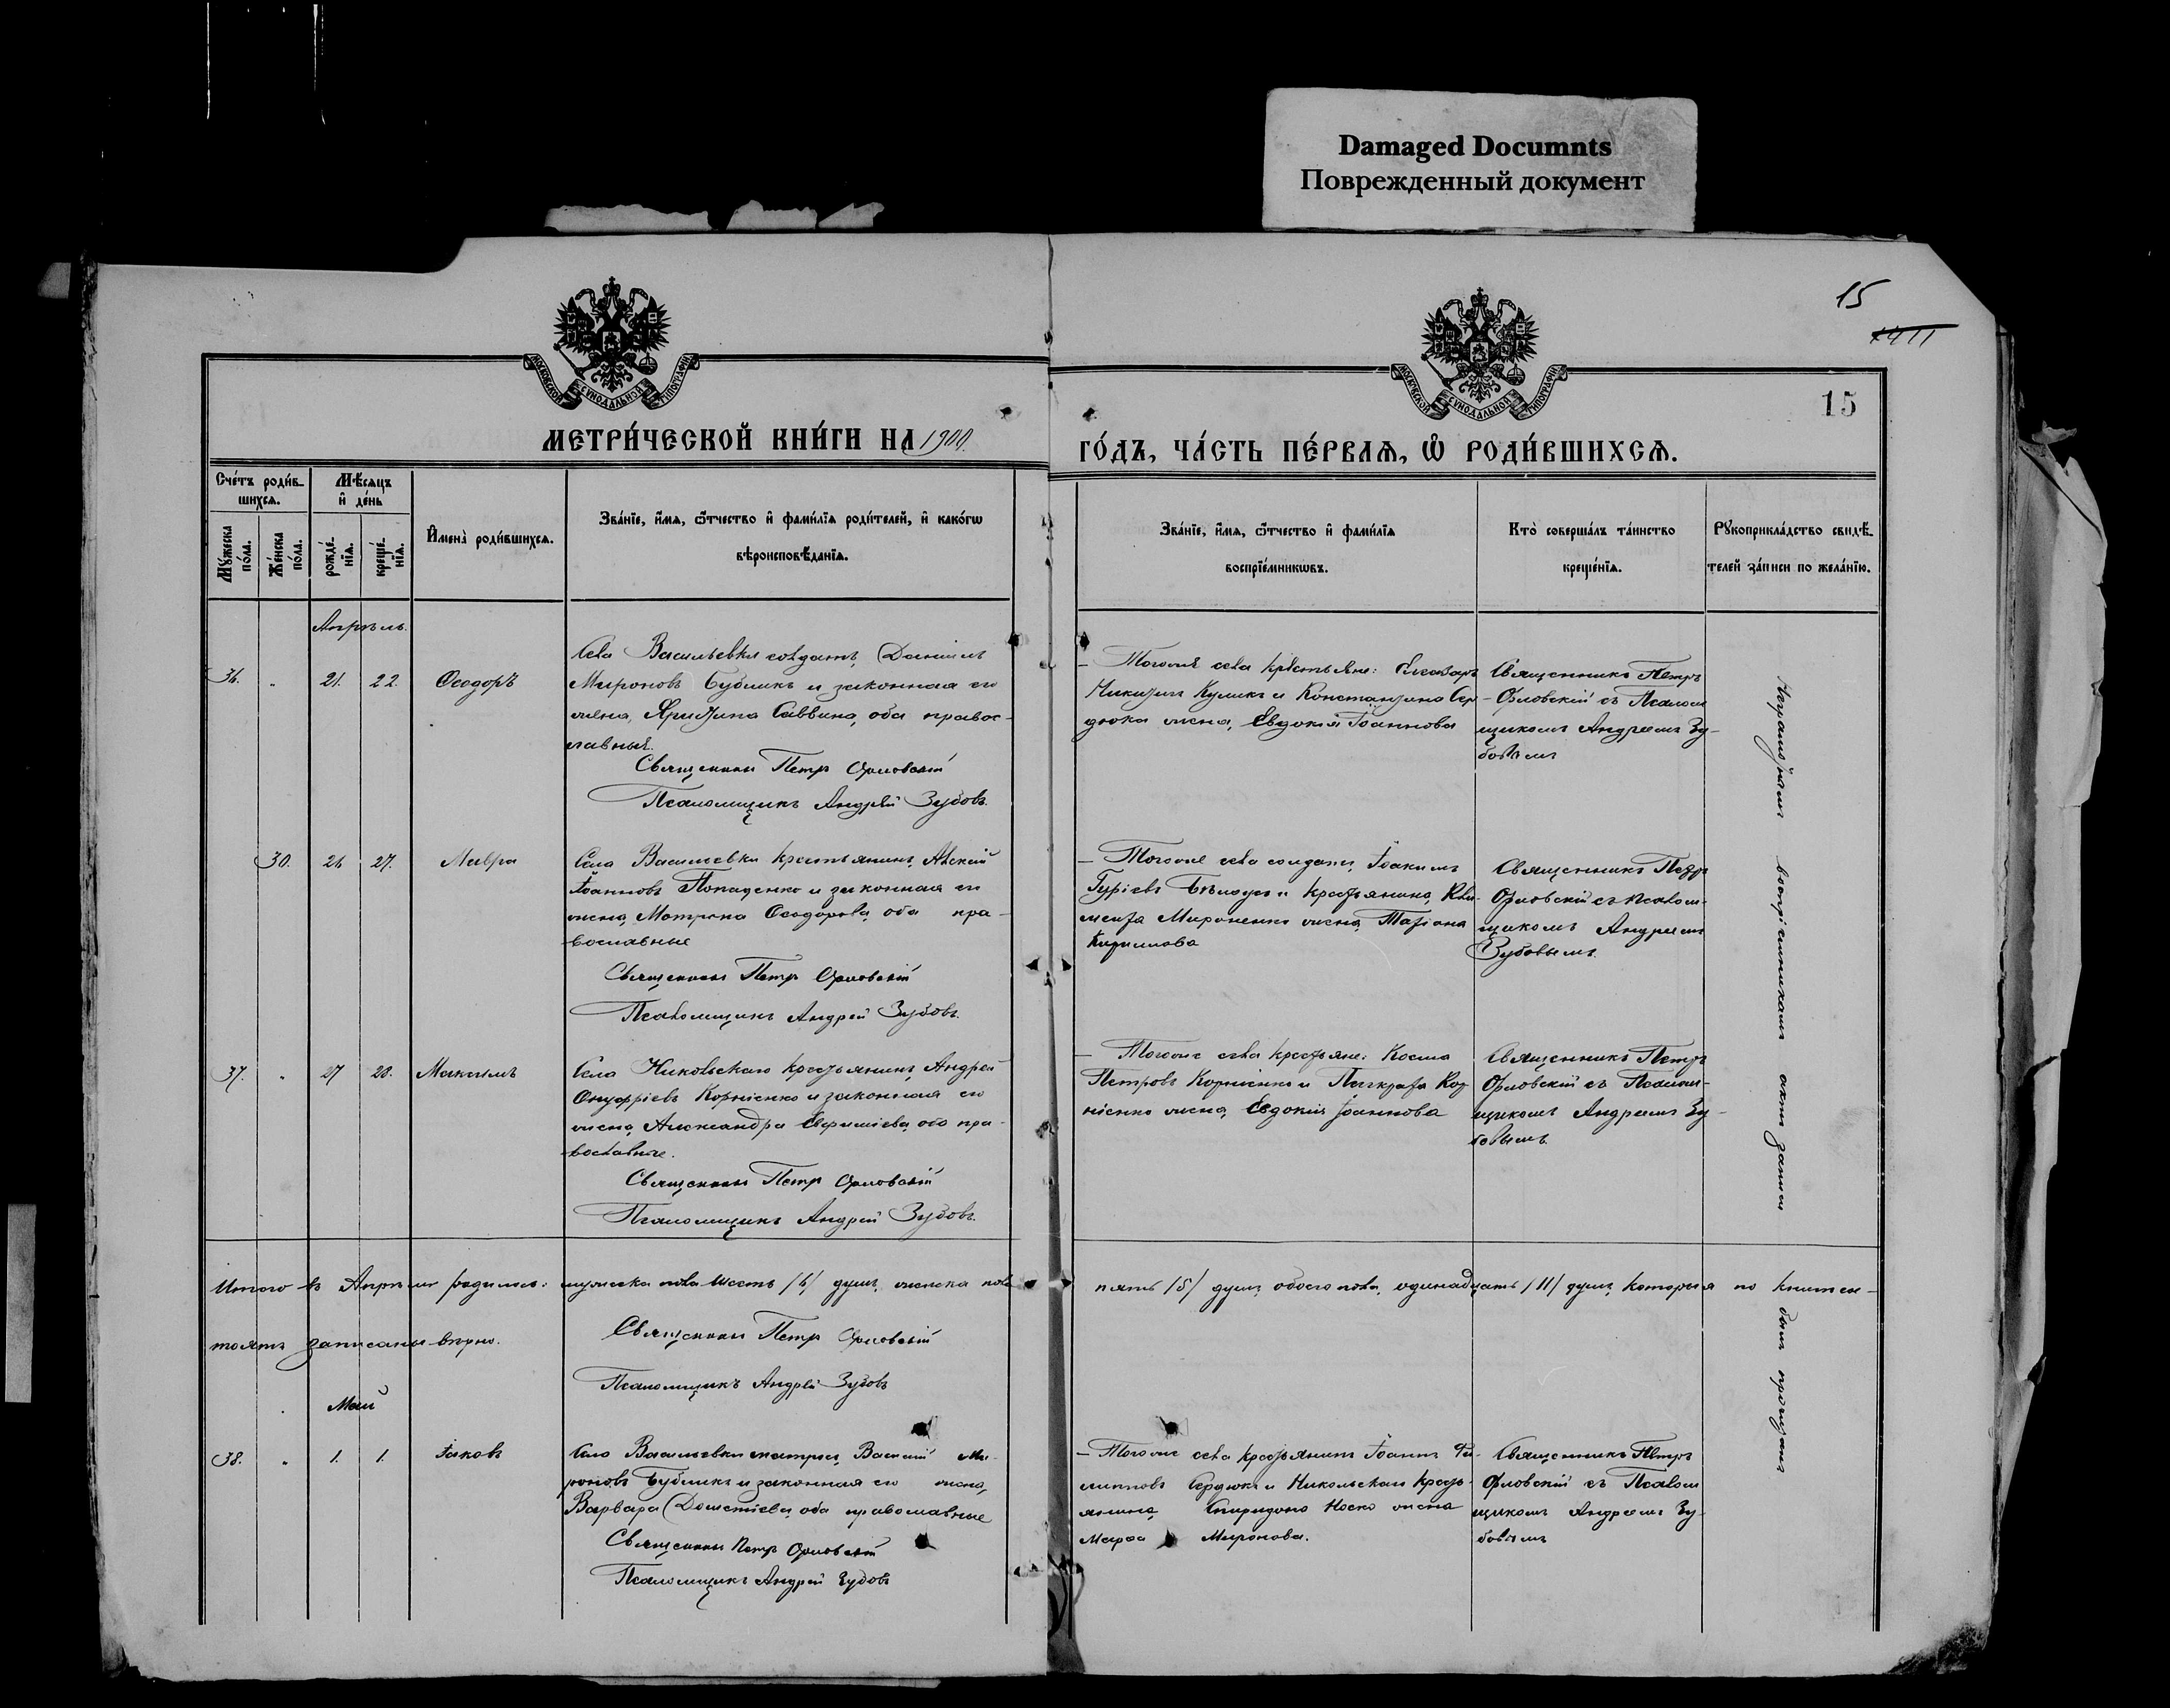 Damaged Documnts
Поврежденный документ
15
15
МОСКОВСКОЙ СѴНОДАЛЬНОЙ ТИПОГРАФІИ
МОСКОВСКОЙ СѴНОДАЛЬНОЙ ТИПОГРАФІИ
МЕТРИ́ЧЕСКОЙ КНИ́ГИ НА 1900.
ГО́ДЪ, ЧА́СТЬ ПЕ́РВАѦ, Ѽ РОДИ́ВШИХСѦ.
Сче́тъ роди́в-
шихсѧ.
Мѣ́сѧцъ
и҆ де́нь
Мꙋжеска по́ла.
Же́нска по́ла.
рожде́-нїѧ.
креще́-нїѧ.
И҆мена̀ роди́вшихсѧ.
Зва́нїе, и҆́мѧ, ѻ҆́тчество и҆ фами́лїѧ роди́телей, и҆ како́гѡ
вѣроисповѣ́данїѧ.
Зва́нїе, и҆́мѧ, ѻ҆́тчество и҆ фами́лїѧ
воспрїе́мникѡвъ.
Кто̀ соверша́лъ та́инство
креще́нїѧ.
Рꙋкоприкла́дство свидѣ́-
телей за́писи по жела́нїю.
Апрѣль.
36. " 21. 22. Ѳеодоръ
Села Васильевки солдатъ, Даніилъ
Мироновъ Бубликъ и законная его
жена, Христина Саввина, оба правос-
лавные.
Священникъ Петръ Орловскій
Псаломщикъ Андрей Зубовъ.
Тогоже села крестьяне: Елеазаръ
Никитинъ Куликъ и Константина Сер-
дюка жена, Евдокія Іоаннова
Священникъ Петръ
Орловскій съ Псалом
щикомъ Андреемъ Зу-
бовымъ
30. 26 27. Мавра
Села Васильевки крестьянинъ, Алексій
Іоанновъ Попаденко и законная его
жена, Матрона Ѳеодорова, оба пра-
вославные
Священникъ Петръ Орловскій
Псаломщикъ Андрей Зубовъ.
Тогоже села солдатъ, Іоакимъ
Гуріевъ Бѣлоусъ и крестьянина, Кли-
мента Мироненко жена, Татіана
Кириллова
Священникъ Петръ
Орловскій съ псалом-
щикомъ Андреемъ
Зубовымъ.
37. " 27 28. Максимъ
Села Никольскаго крестьянинъ, Андрей
Онуфріевъ Корніенко и законная его
жена, Александра Евфиміева, оба пра-
вославные.
Священникъ Петръ Орловскій
Псаломщикъ Андрей Зубовъ.
Тогоже села крестьяне: Косма
Петровъ Корніенко и Панкрата Кор-
ніенко жена, Евдокія Іоаннова
Священникъ Петръ
Орловскій съ Псалом-
щикомъ Андреемъ Зу-
бовымъ.
Итого въ Апрѣлѣ родилось: мужеска пола шесть /6/ душъ, женска пола пять /5/ душъ, обоего пола, одинадцать /11/ душъ, которыя по
тоятъ записаны вѣрно.
Священникъ Петръ Орловскій
Псаломщикъ Андрей Зубовъ
Май
38. " 1. 1. Іаковъ
Села Васильевки матросъ, Василій Ми-
роновъ Бубликъ и законная его жена,
Варвара Дометіева, оба православные
Священникъ Петръ Орловскій
Псаломщикъ Андрей Зубовъ
Тогоже села крестьянинъ Іоаннъ Фи-
липповъ Сердюкъ и Никольскаго кресть-
янина, Спиридона Носко жена
Марѳа Миронова.
Священникъ Петръ
Орловскій съ Псалом
щикомъ Андреемъ Зу-
бовымъ
Неграмотнымъ воспріемникамъ актъ записи былъ прочитанъ